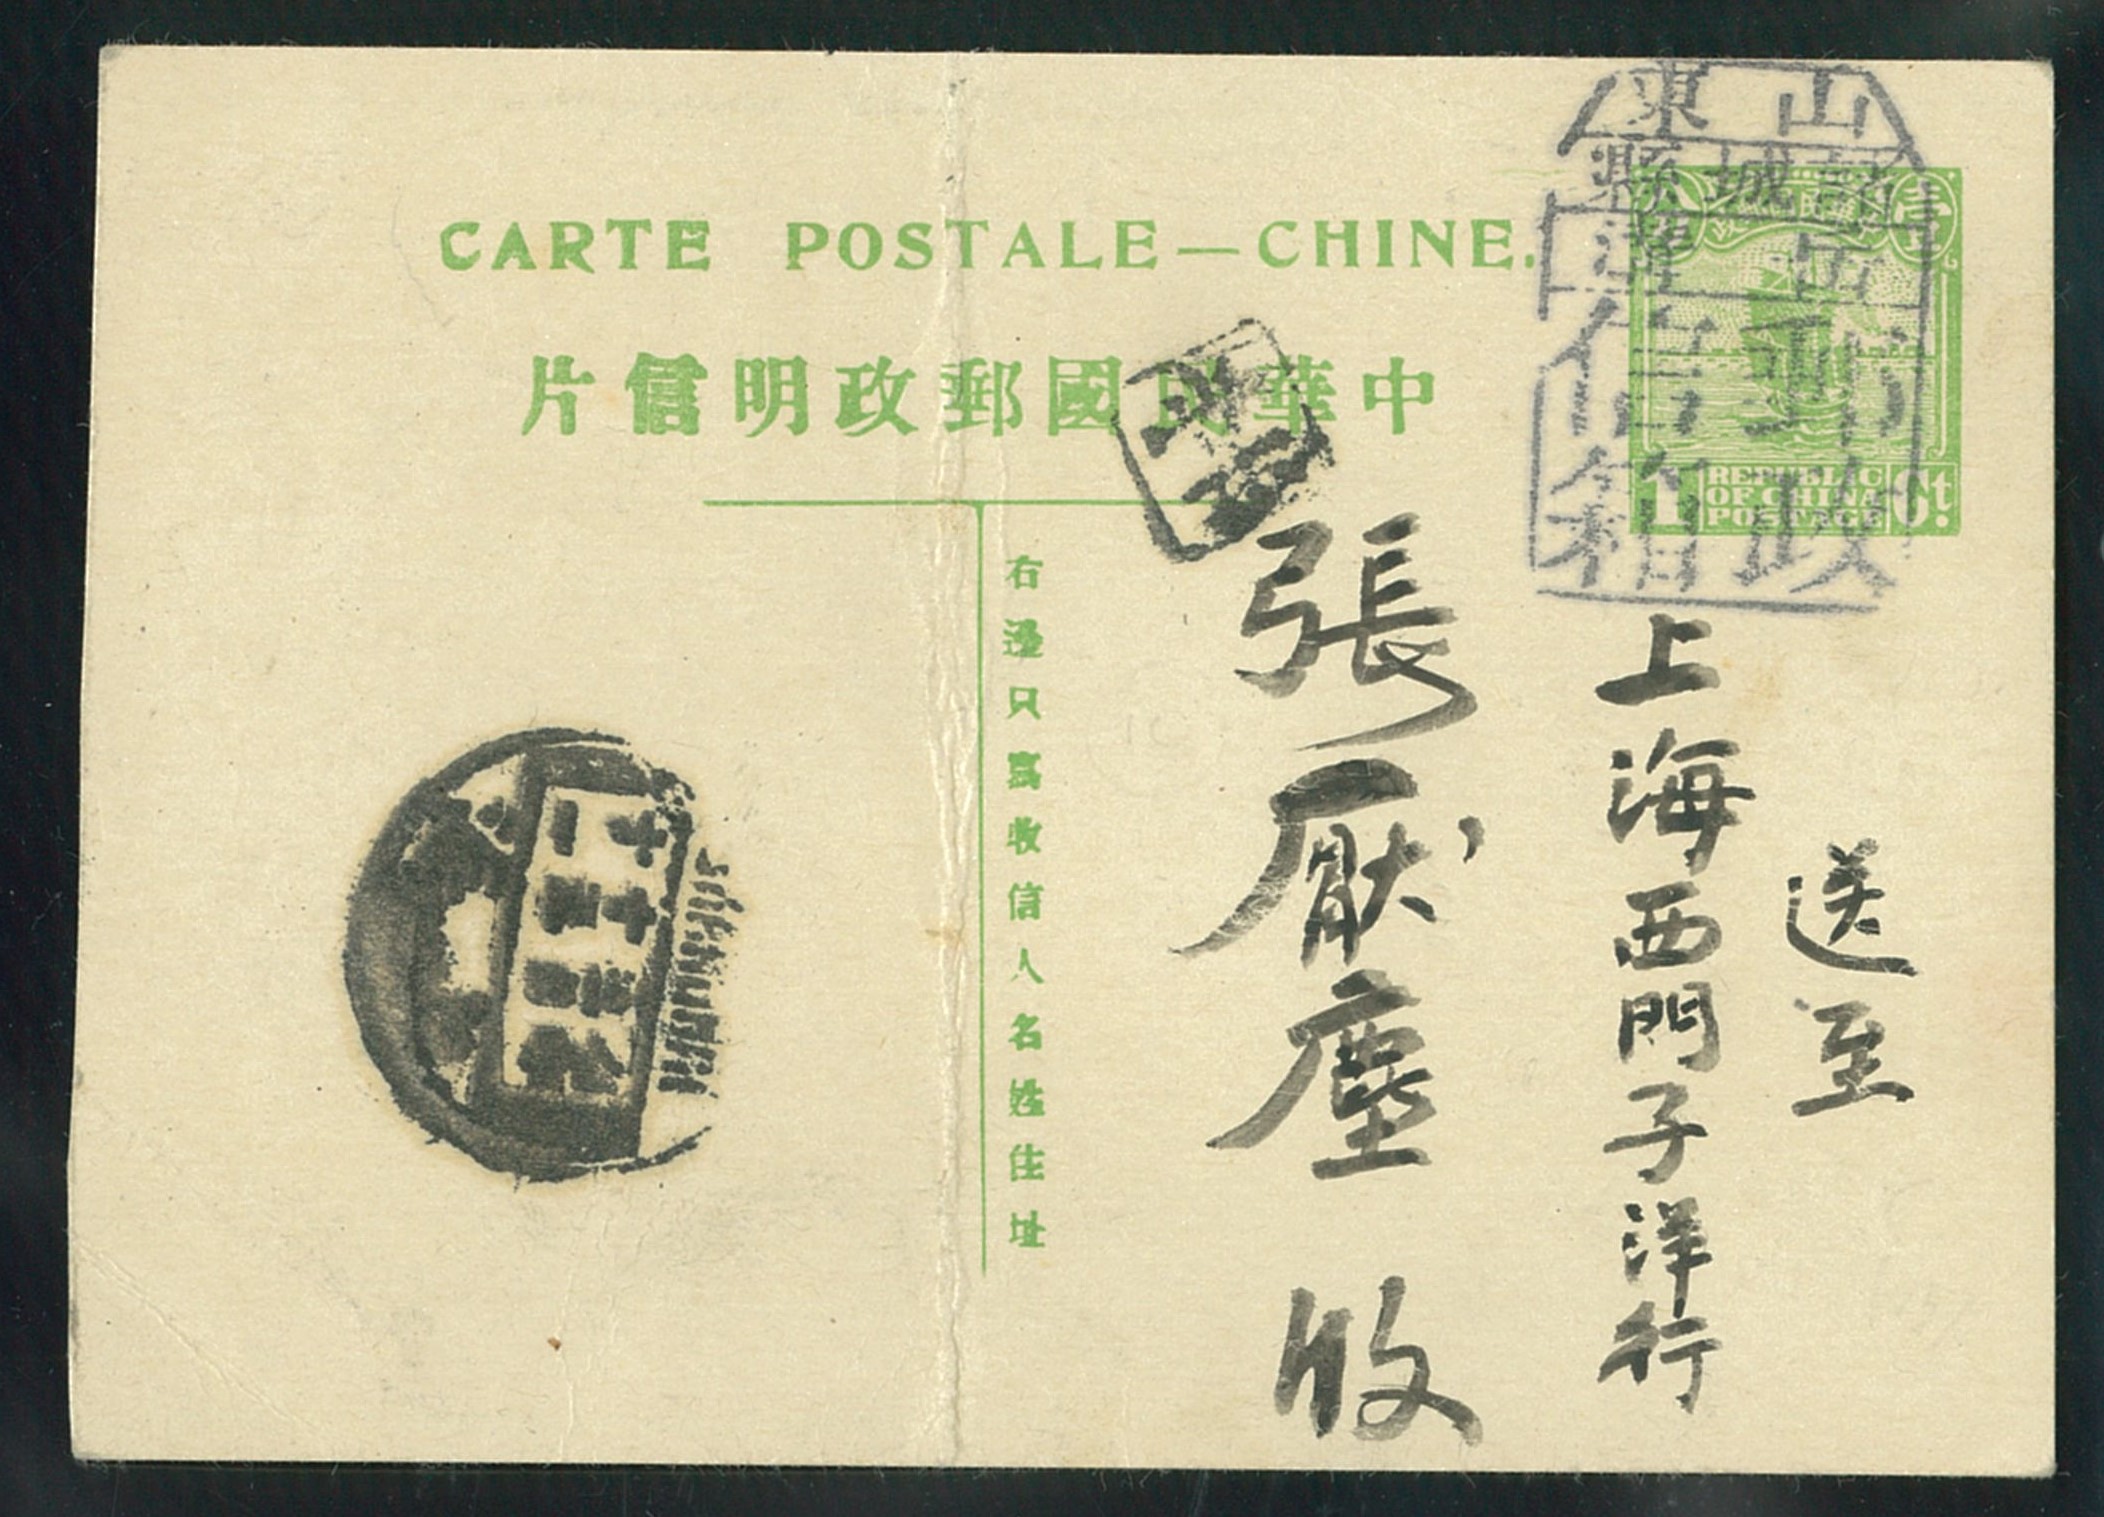 CARTE POSTALE — CHINE.
中華民國郵政明信片
右邊只寫收信人名姓住址
山東
城縣
郵政
信箱
壹
1 Ct.
REPUBLIC
OF CHINA
POSTAGE
送至
上海西門子洋行
張厭塵 收